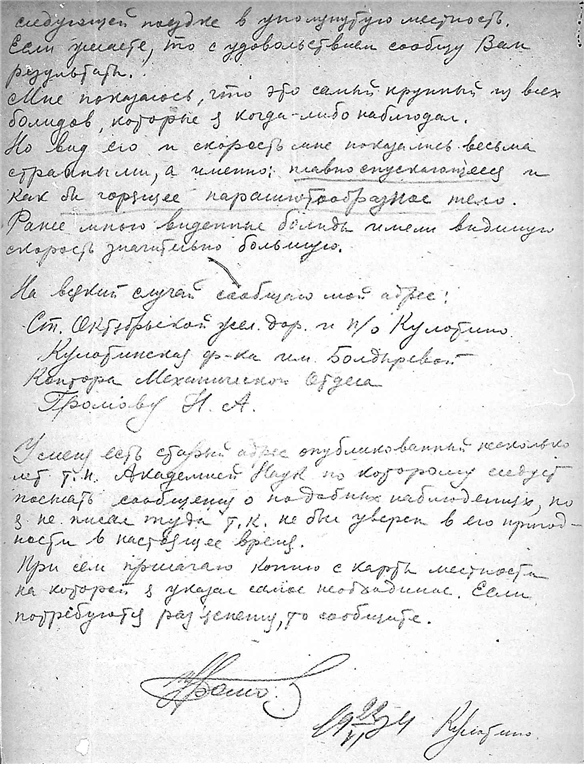 следующей поездке в упомянутую местность.
Если желаете, то с удовольствием сообщу Вам
результаты.
Мне показалось, что это самый крупный из всех
болидов, которые я когда-либо наблюдал.
Но вид его и скорость мне показались весьма
странными, а именно: плавно спускающееся и
как бы горящее парашютообразное тело.
Ранее мною виденные болиды имели видимую
скорость значительно большую.
На всякий случай сообщаю мой адрес:
Ст. Октябрьской жел. дор. и п/о Кулотино.
Кулотинская ф-ка им. Болдыревой
Контора Механического Отдела
Громову Н. А.
У меня есть старый адрес опубликованный несколько
лет т.н. Академией Наук по которому следует
посылать сообщения о подобных наблюдениях, но
я не писал туда т.к. не был уверен в его пригод-
ности в настоящее время.
При сем прилагаю копию с карты местности
на которой я указал самое необходимое. Если
потребуются раз'яснения, то сообщите.
Кулотино.